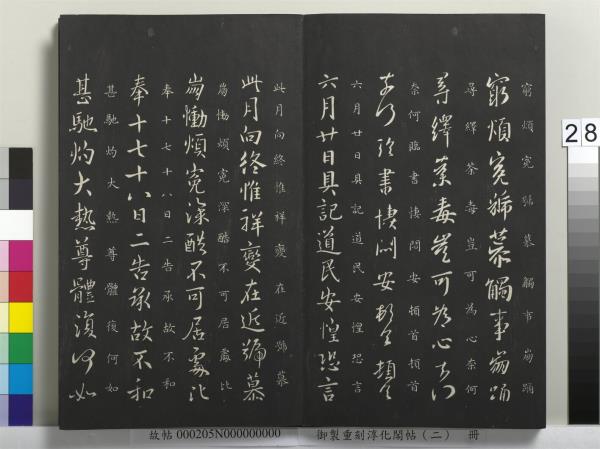 窮煩冤號慕觸事崩踊
窮煩冤號慕觸事崩踊
尋繹荼毒豈可為心奈何
尋繹荼毒豈可為心奈何
奈何臨書悽悶安頓首頓首
奈何臨書悽悶安頓首頓首
六月廿日具記道民安惶恐言
六月廿日具記道民安惶恐言
此月向終惟祥變在近號慕
此月向終惟祥變在近號慕
崩慟煩冤深酷不可居處比
崩慟煩冤深酷不可居處比
奉十七十八日二告承故不和
奉十七十八日二告承故不和
甚馳灼大熱尊體復何如
甚馳灼大熱尊體復何如
故帖 000205N000000000 御製重刻淳化閣帖（二） 冊
28